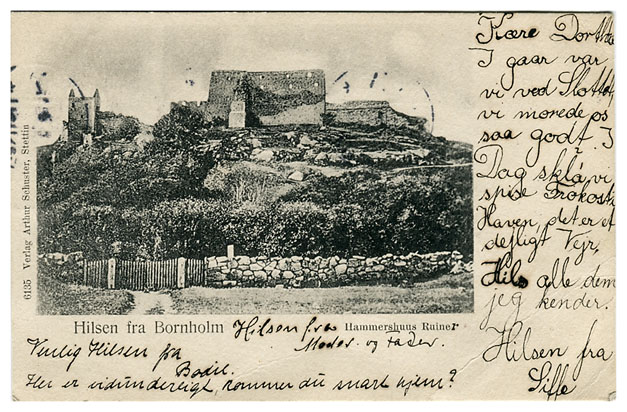 Kære Dorthea
I gaar var
vi ved Slottet,
vi morede os
saa godt. I
Dag skla vi
spise Frokost i
Haven, det er et
dejligt Vejr,
Hils alle dem
jeg kender.
Hilsen fra
Sisse
6135 Verlag Arthur Schuster, Stettin
Hilsen fra Bornholm
Hammershuus Ruiner
Hilsen fra
Moder og Fader.
Venlig Hilsen fra
Bodil.
Her er vidunderligt, kommer du snart hjem?